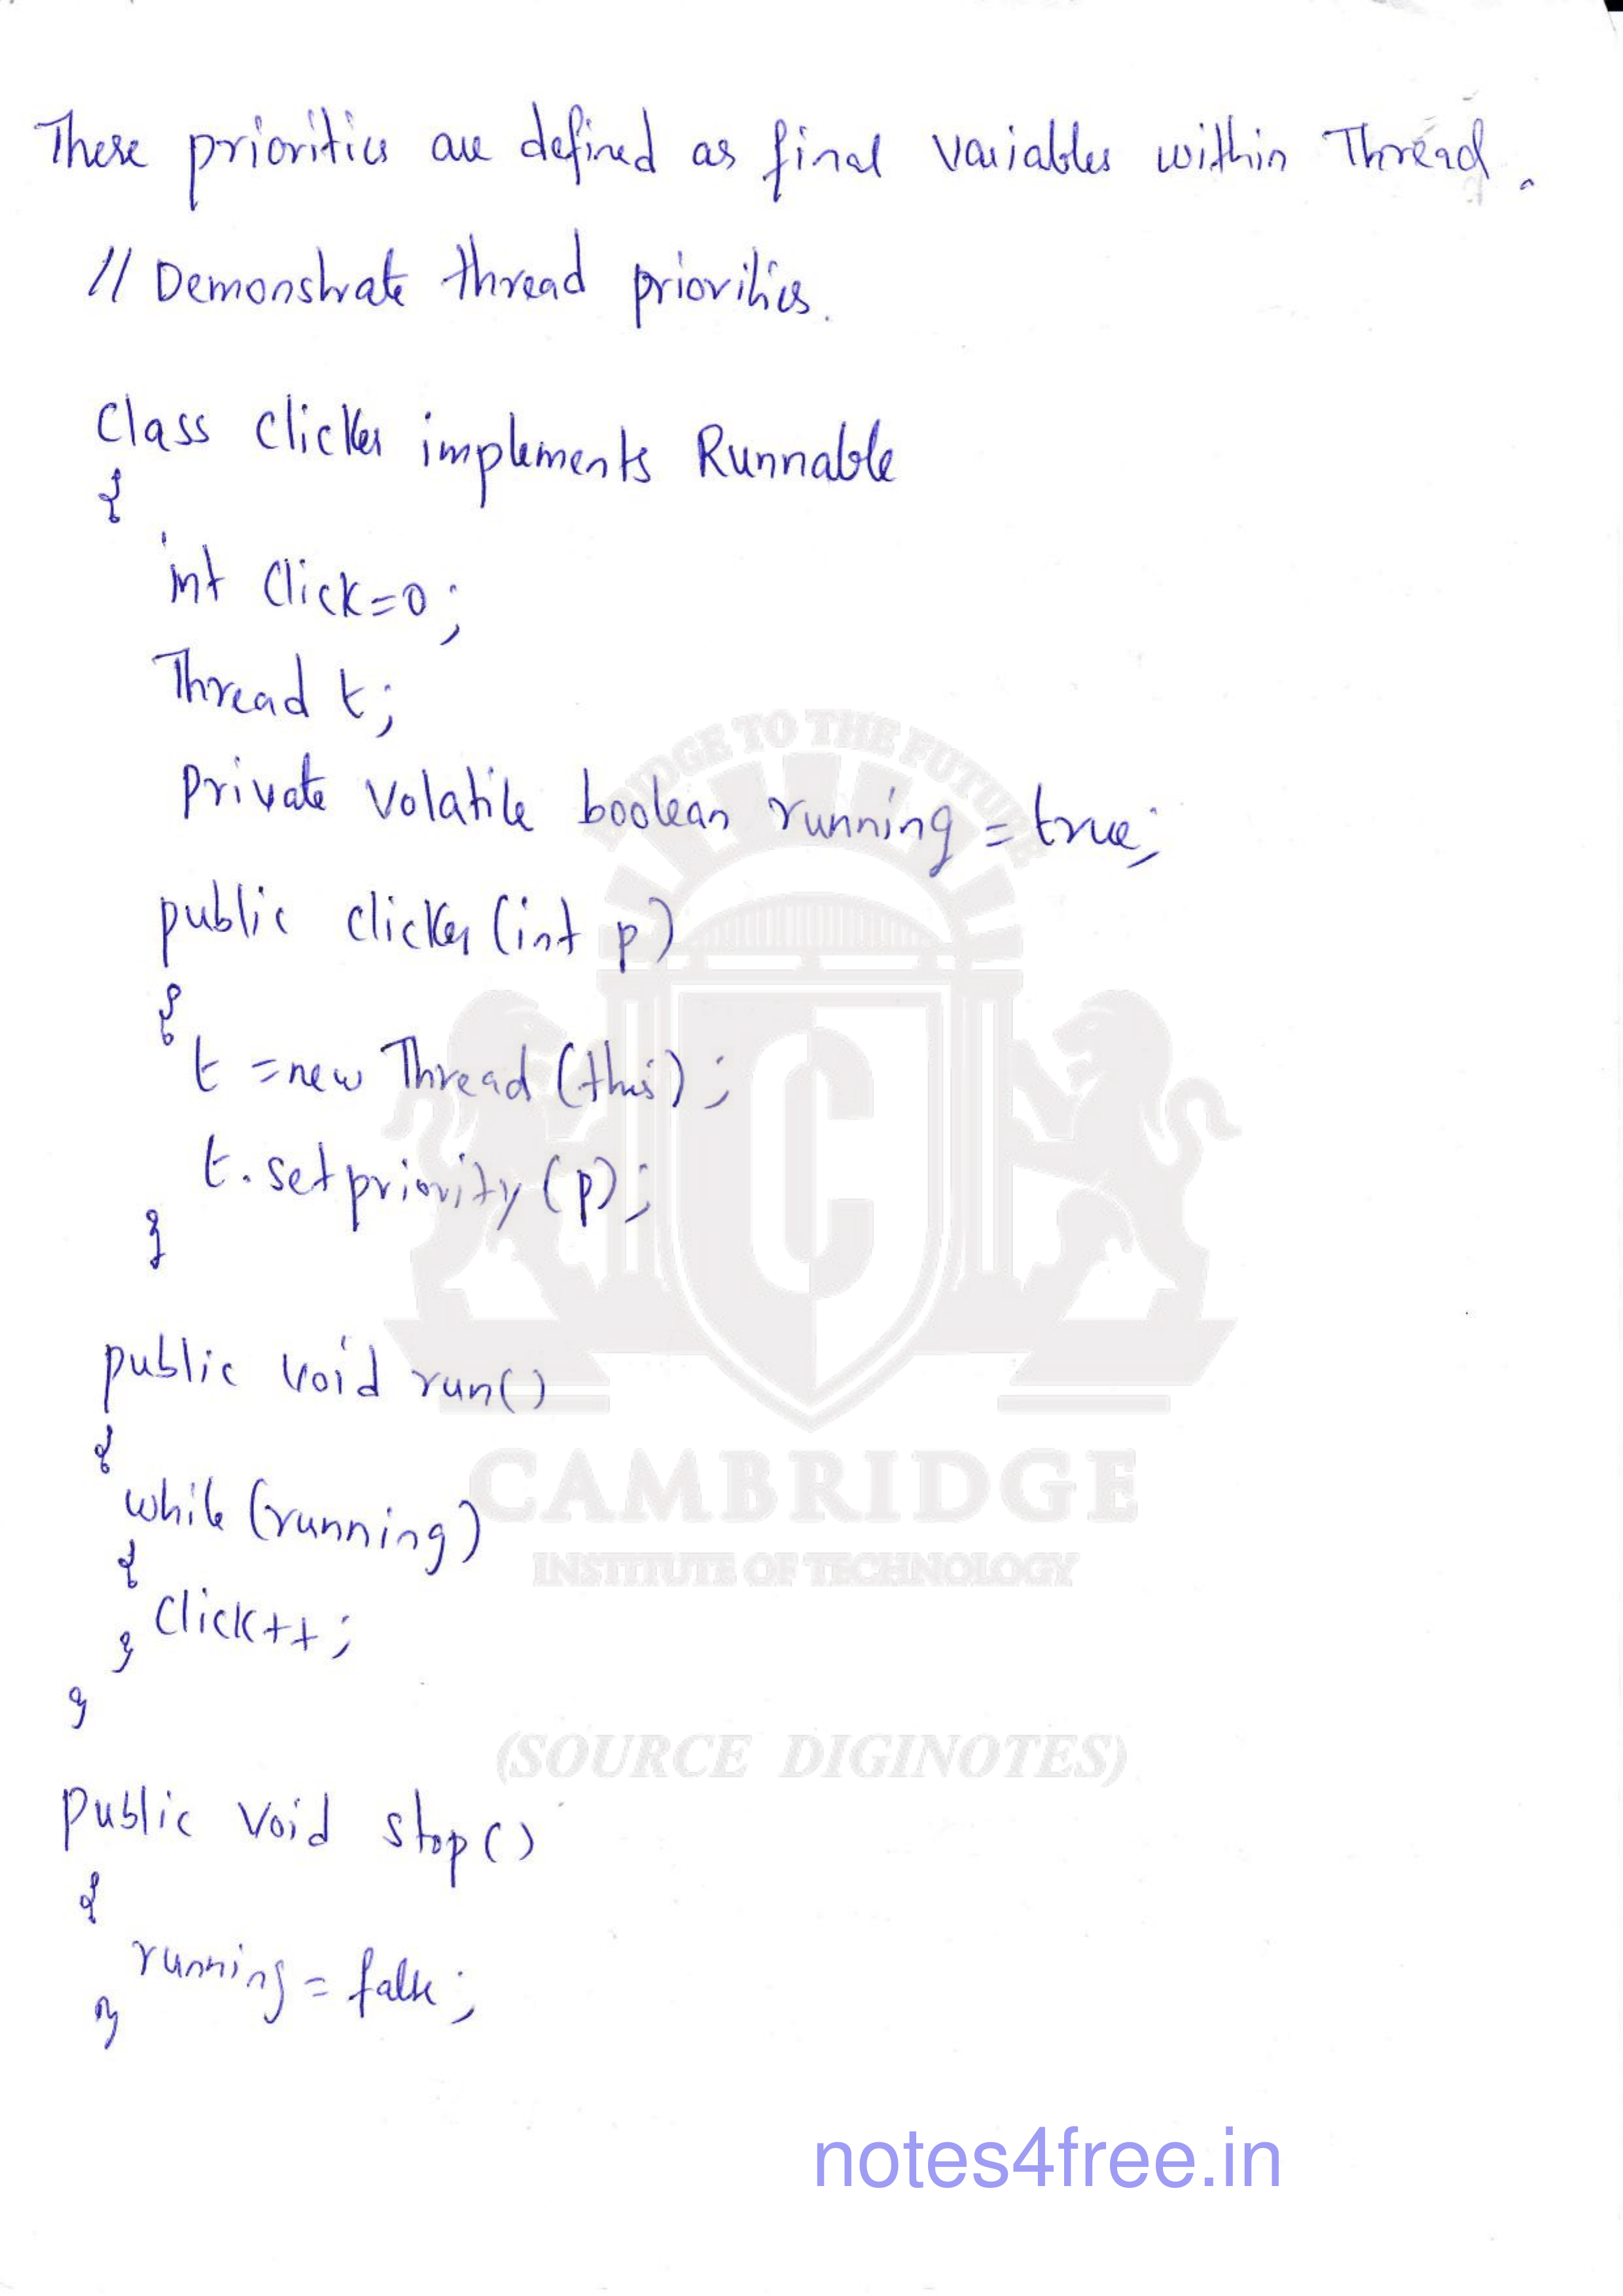 These priorities are defined as final variables within Thread.
// Demonstrate thread priorities.
Class Clicker implements Runnable
{
int Click=0;
Thread t;
private volatile boolean running = true;
public clicker (int p)
{
t = new Thread (this);
t. setpriority (p);
}
public void run()
{
while (running)
{
Click++;
}
}
public void stop()
{
running = false;
}
BRIDGE TO THE FUTURE
C
CAMBRIDGE
INSTITUTE OF TECHNOLOGY
(SOURCE DIGINOTES)
notes4free.in